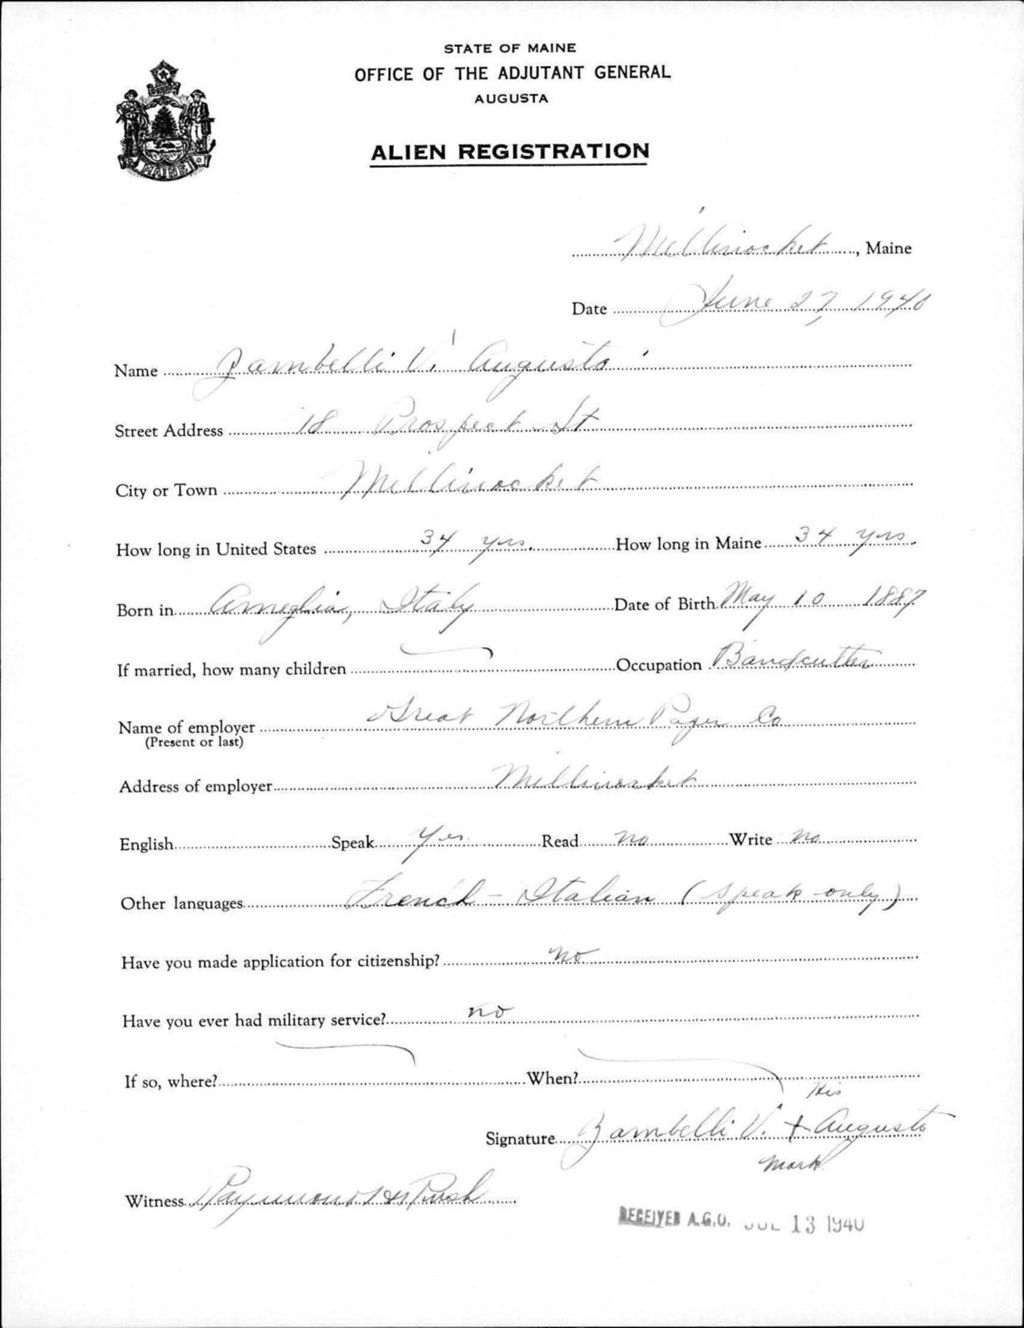 STATE OF MAINE
OFFICE OF THE ADJUTANT GENERAL
AUGUSTA
ALIEN REGISTRATION
MAINE
Millinocket, Maine
Date June 27, 1940
Name Zambelli V. Augusto
Street Address 18 Prospect St
City or Town Millinocket
How long in United States 34 yrs. How long in Maine 34 yrs.
Born in Ameglia, Italy Date of Birth May 10 1887
If married, how many children Occupation Bandcutter
Name of employer Great Northern Paper Co
(Present or last)
Address of employer Millinocket
English Speak Yes Read no Write no
Other languages French - Italian (speak only)
Have you made application for citizenship? no
Have you ever had military service? no
If so, where? When?
His
Signature Zambelli V. + Augusto
mark
Witness Raymond Rush
RECEIVED A.G.O. JUL 13 1940